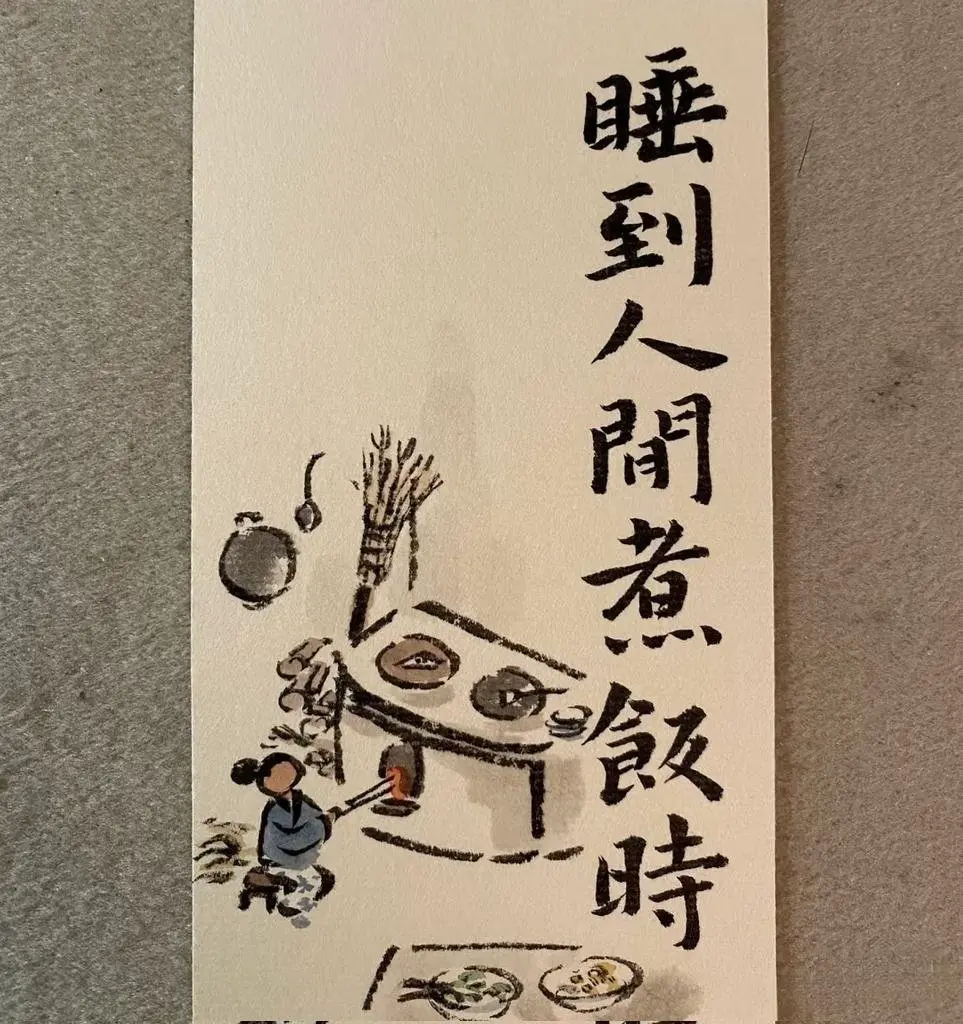 睡到人間煮飯時